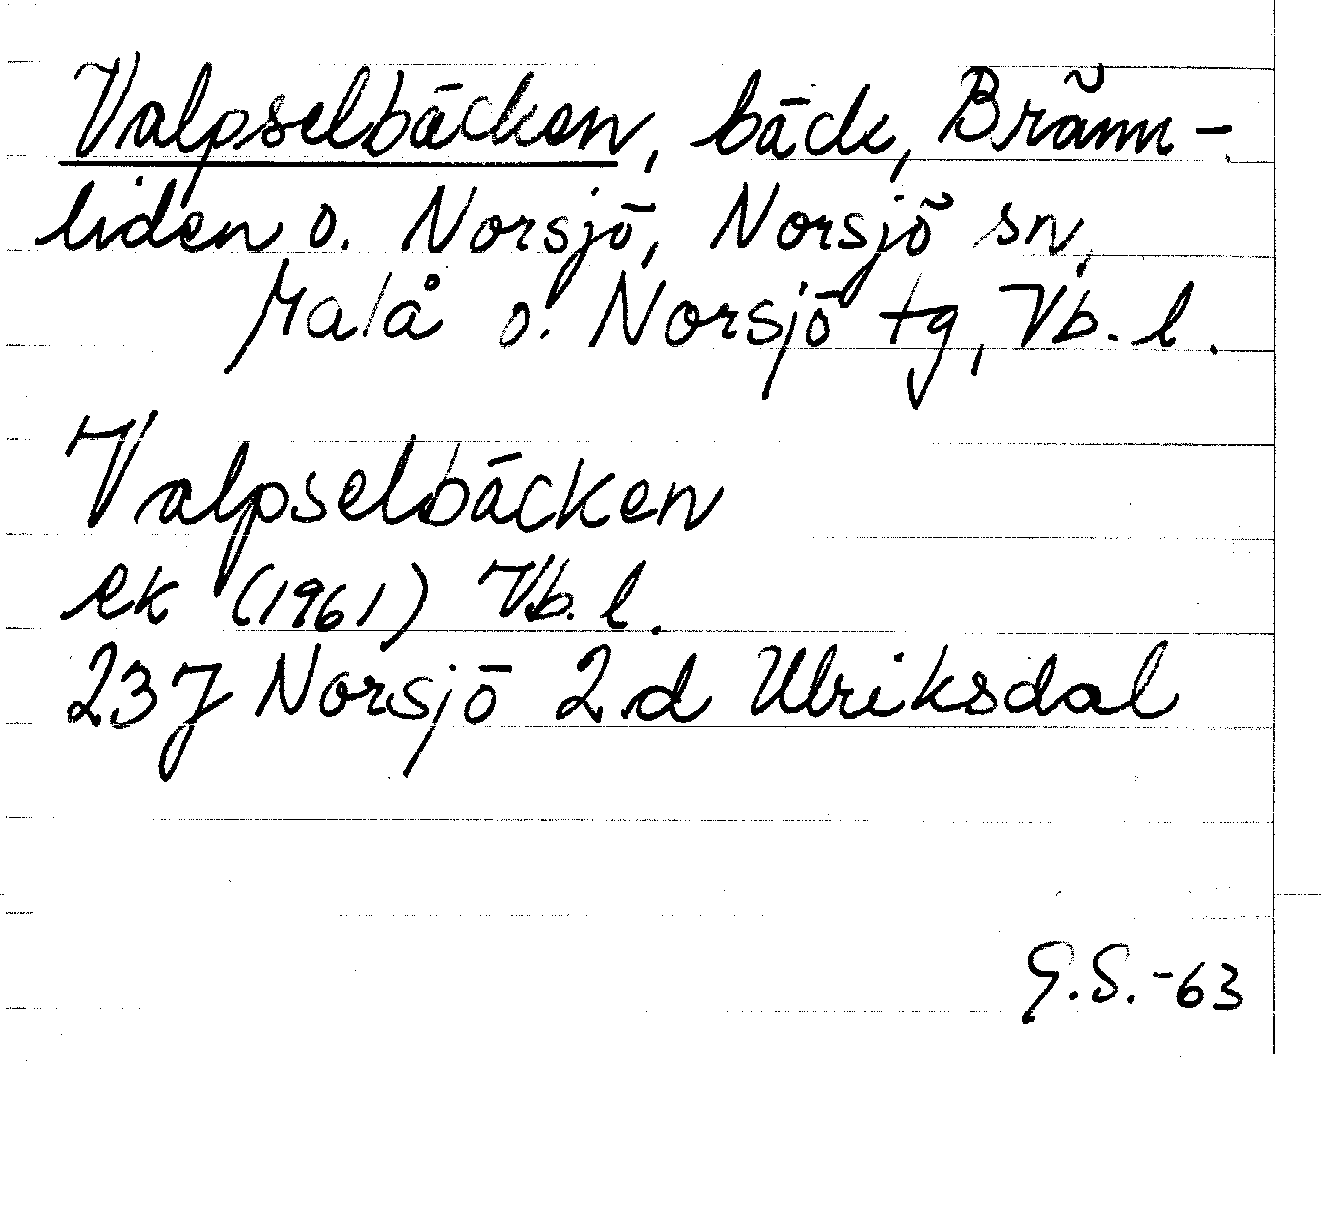 Valpselbäcken, bäck, Bränn-
liden o. Norsjö, Norsjö sn,
Malå o. Norsjö tg, Vb. l.
Valpselbäcken
ek (1961) Vb. l.
23J Norsjö 2.d Ulriksdal
G.S.-63